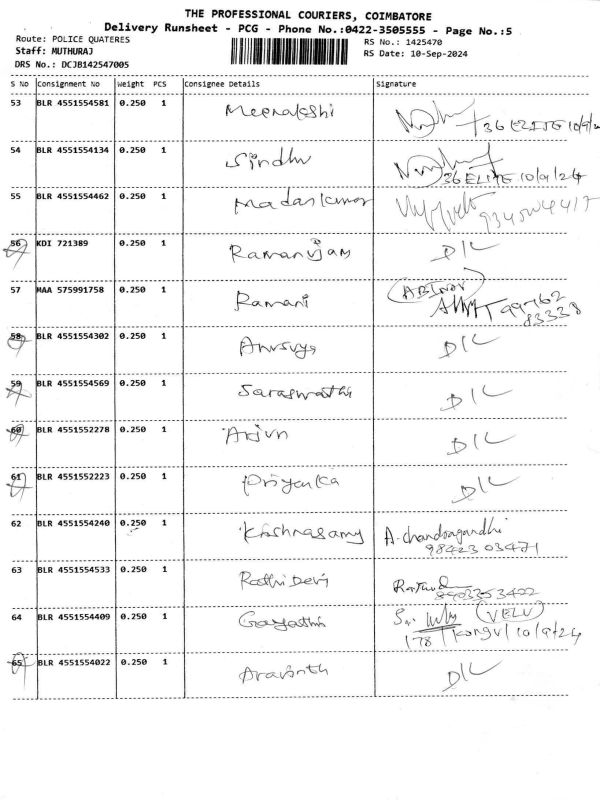 THE PROFESSIONAL COURIERS, COIMBATORE
Delivery Runsheet - PCG - Phone No.:0422-3505555 - Page No.:5
Route: POLICE QUATERES
RS No.: 1425470
Staff: MUTHURAJ
RS Date: 10-Sep-2024
DRS No.: DCJB142547005
S No Consignment No Weight PCS Consignee Details Signature
53 BLR 4551554581 0.250 1 Meenakshi
36 ELITE 10/9/24
54 BLR 4551554134 0.250 1 Sindhu
36 ELITE 10/9/24
55 BLR 4551554462 0.250 1 Madankumar
56 KDI 721389 0.250 1 Ramanujam D/L
57 MAA 575991758 0.250 1 Ramani
99762
83338
58 BLR 4551554302 0.250 1 Anusuya D/L
59 BLR 4551554569 0.250 1 Saraswathi D/L
60 BLR 4551552278 0.250 1 Arjun D/L
61 BLR 4551552223 0.250 1 Priyanka D/L
62 BLR 4551554240 0.250 1 Krishnasamy A. chandragandhi
98423 03471
63 BLR 4551554533 0.250 1 Rathi Devi
8903353422
64 BLR 4551554409 0.250 1 Gayathri (VELU)
178 Kongu 10/9/24
65 BLR 4551554022 0.250 1 Aravinth D/L